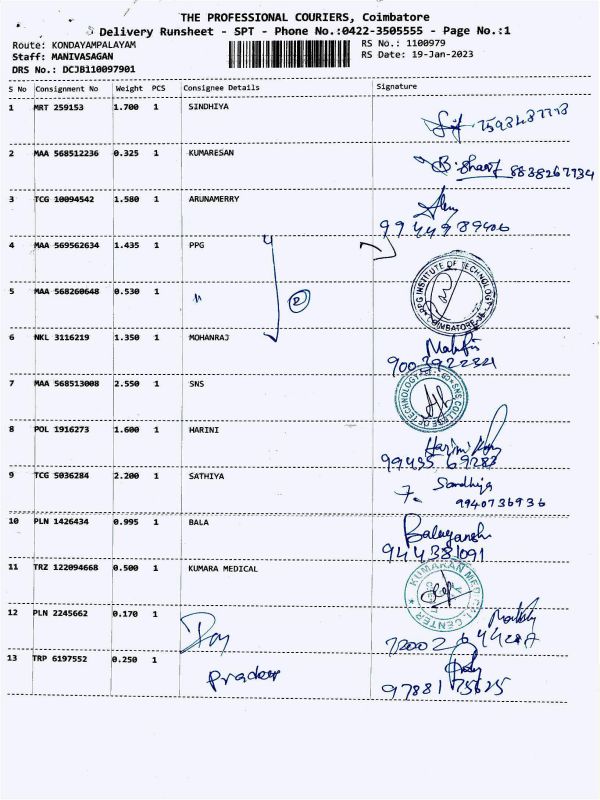 THE PROFESSIONAL COURIERS, Coimbatore
Delivery Runsheet - SPT - Phone No.:0422-3505555 - Page No.:1
Route: KONDAYAMPALAYAM
RS No.: 1100979
Staff: MANIVASAGAN
RS Date: 19-Jan-2023
DRS No.: DCJB110097901
S No Consignment No Weight PCS Consignee Details Signature
1 MRT 259153 1.700 1 SINDHIYA
2 MAA 568512236 0.325 1 KUMARESAN
8838267734
3 TCG 10094542 1.580 1 ARUNAMERRY
9944989406
4 MAA 569562634 1.435 1 PPG
PPG INSTITUTE OF TECHNOLOGY
COIMBATORE
5 MAA 568260648 0.530 1 " 2
6 NKL 3116219 1.350 1 MOHANRAJ
7 MAA 568513008 2.550 1 SNS
SNS COLLEGE OF TECHNOLOGY
8 POL 1916273 1.600 1 HARINI
Harini
99435 69283
9 TCG 5036284 2.200 1 SATHIYA
Sandhiya
9940736936
10 PLN 1426434 0.995 1 BALA
Balaganesh
9444381091
11 TRZ 122094668 0.500 1 KUMARA MEDICAL
KUMARAN MEDICAL CENTER
12 PLN 2245662 0.170 1
13 TRP 6197552 0.250 1 Pradeep
9788175625